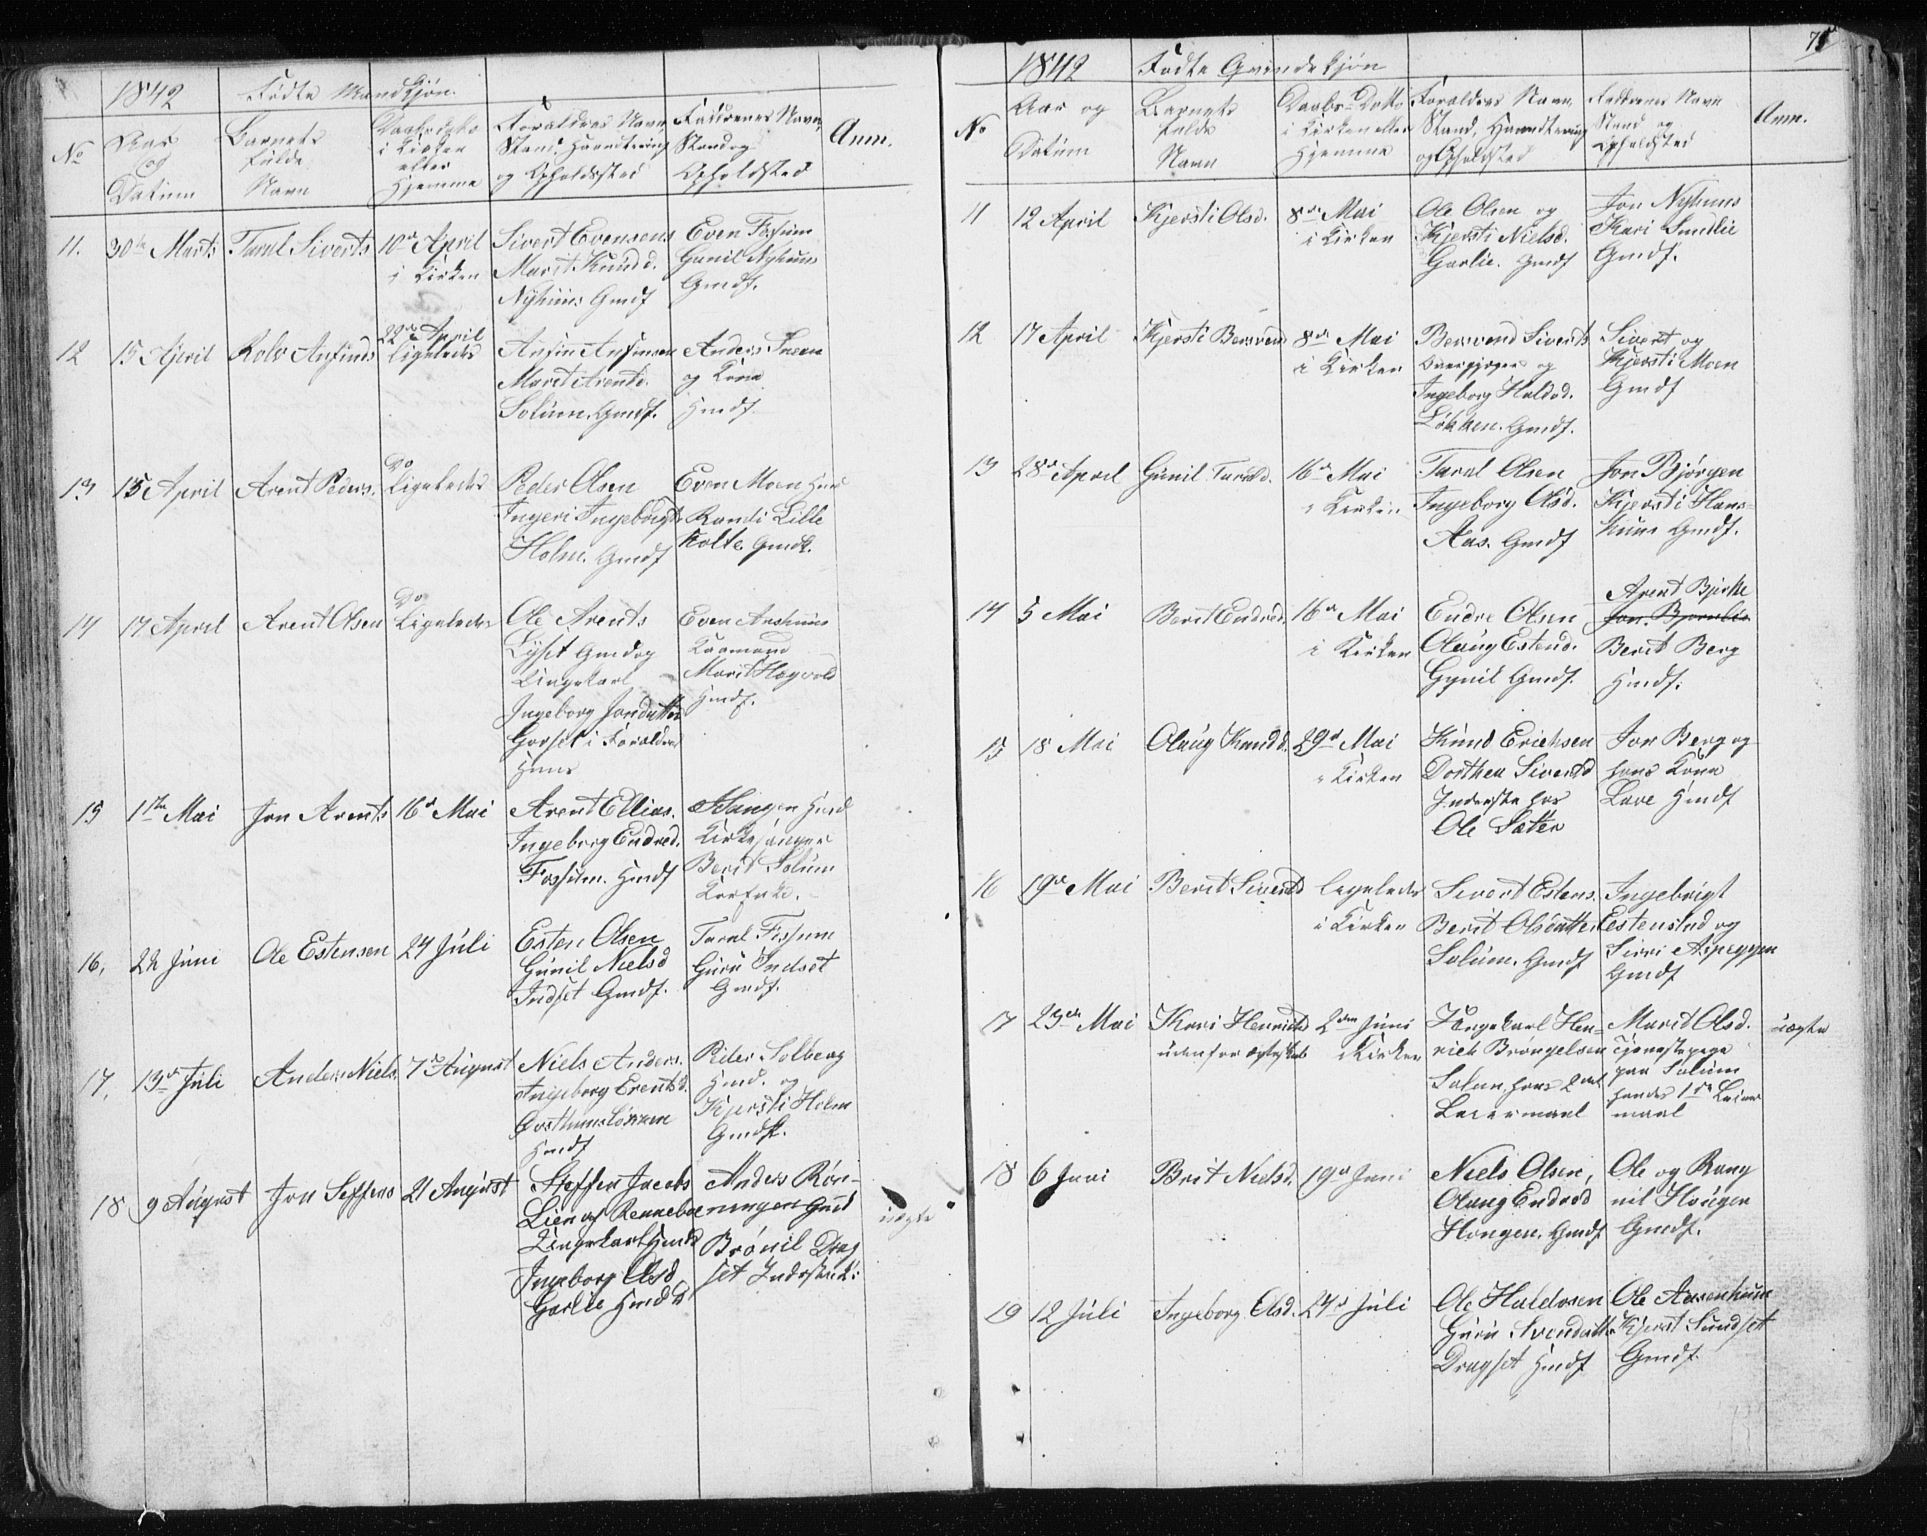 1842 Fødte Mandkjøn.
No
Aar
og
Datum
Barnets
fulde
Navn
Daabsdatto
i Kirken
eller
Hjemme
Forældres Navn,
Stand, Haandtering
og Opholdssted
Faddrenes Navn,
Stand og
Opholdsted
Anm.
11. 30te Marts Taral Siverts 10de April
i Kirken
Sivert Evensen
Marit Knudsd.
Nyhuus Gmdf
Even Fossum
Gunil Nyhuus
Gmdf.
12 15 April Rolv Anfinds 22de April
Ligeledes
Anfin Anfinsen
Marit Arentsd.
Solum. Gmdf.
Anders Sneen
og Kone
Hmdf
13 15 April Arent Peders. Do
Ligeledes
Peder Olsen
Ingeri Ingebrigtsd
Holm. Gmdf
Even Moen Huus
Randi Lille
Kolte Gmdk.
14 17 April Arent Olsen Do
Ligeledes
Ole Arents
Lyset Gmd og
Ungekarl
Ingeborg Jondatter
Gorset i Forældres
Huus
Even Aashuus
Kaarmand
Marit Hogvold
Hmdf.
15 1ste Mai Jon Arents 16de Mai
Arent Ellias.
Ingeborg Endred.
Fossum. Hmdf
Haugen Hmd
Kirkesanger
Berit Solum
16, 22 Juni Ole Estensen 24 Juli
Esten Olsen
Gunil Nielsd
Indset Gmdf.
Taral Fossum
Guru Indset
Gmdf.
17, 13de Juli Anders Niels. 7de August
Niels Anders.
Ingeborg Erentsd.
Hmdf
Peder Solberg
Hmd. og
Kjersti Holm
Gmdsk.
18 9 August Jon Steffens 21 August
Steffen Jacobs
Lien af Rennebu
Ungekarl Hmd
Ingeborg Olsd
Garlie Hmds
Anders Røn-
ningen Gmd
Brønil Drag
set Inderstenk:
uægte
75
1842 Fødte Qvindekjøn
No
Aar og
Datum
Barnets
fulde
Navn
Daabs-Datto
i Kirken eller
Hjemme
Forældres Navn,
Stand, Haandtering
og Opholdsted
Faddrenes Navn
Stand og
Opholdsted
Anm.
11 12 April Kjersti Olsd. 8de Mai
i Kirken
Ole Olsen og
Kjersti Nielsd.
Garlie. Gmdf
Jon Nyhuus
Kari Smedlie
Gmdf.
12 17 April Kjersti Bersvend 8de Mai
i Kirken
Bersvend Siverts
og
Ingeborg Haldosd.
Løkken. Gmdf.
Sivert og
Kjersti Moen
Gmdf
13 28de April Gunil Tarald. 16de Mai
i Kirken
Taral Olsen
Ingeborg Olsd.
Aas. Gmdf
Jon Bjørgen
Kjersti Hans-
huus Gmdf.
14 5 Mai Berit Endred. 16de Mai
i Kirken
Endre Olsen
Olaug Estensd.
Gynil Gmdf.
Arent Bjerke
Jon Bjørnlie
Berit Berg
Hmdf.
15 18 Mai Olaug Knudsd. 29de Mai
i Kirken
Knud Erichsen
Dorthea Sivertsd
Inderste hos
Ole Sæter
Jon Berg og
hans Kone
Lave Hmdf
16 19de Mai Berit Sivertsd Ligeledes
i Kirken
Sivert Estens.
Berit Olsdatter
Solum. Gmdf
Ingebrigt
Estenstad og
Siri Aspeggen
Gmdf
17 23de Mai Kari Henriksd
udenfor Ægteskab
2den Juni
i Kirken
Ungekarl Hen-
rich Brøngelsen
Solum, hans 2det
Leiermaal
Marit Olsd.
Tjenestepige
paa Solum
hendes 1ste Leier
maal
uægte
18 6 Juni Brit Nielsd. 19de Juni
Niels Olsen,
Olaug Endred
Hougen. Gmdf
Ole og Rang
nil Hougen
Gmdf.
19 12 Juli Ingeborg Olsd. 24de Juli
Ole Haldosen
Guru Svendatter
Dragset Hmdf
Ole Aasenhuus
Kjerst Sundset
Gmdf.